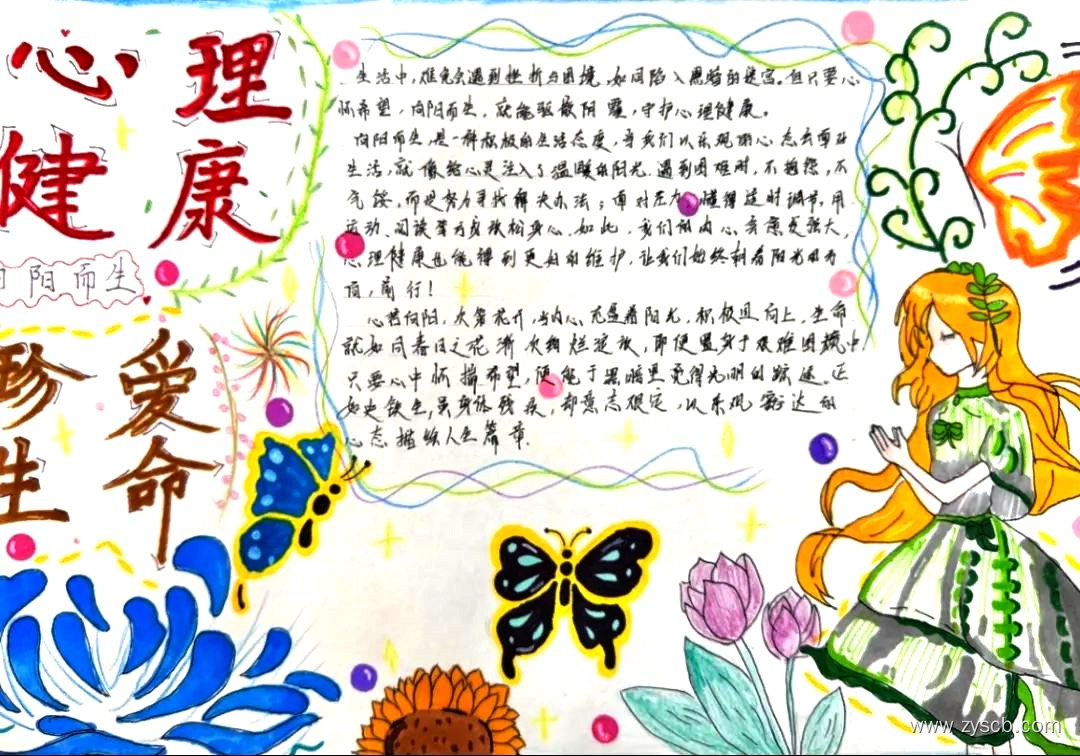 心理
健康
向阳而生
珍爱
生命
生活中,难免会遇到挫折与困境,如同陷入黑暗的迷宫。但只要心
怀希望,向阳而生,就能驱散阴霾,守护心理健康。
向阳而生,是一种积极的生活态度,当我们以乐观的心态去面对
生活,就像给心灵注入了温暖的阳光。遇到困难时,不抱怨,不
气馁,而是努力寻找解决办法;面对压力,懂得适时调节,用
运动、阅读等方式放松身心。如此,我们的内心会愈发强大,
心理健康也能得到更好的维护,让我们始终朝着阳光的方
向,前行!
心若向阳,次第花开,当内心充盈着阳光,积极且向上,生命
就如同春日之花渐次绚烂绽放,即使置身于艰难困境中
只要心中怀揣希望,便能于黑暗里觅得光明的踪迹。正
如史铁生,虽身体残疾,却意志坚定,以乐观豁达的
心态描绘人生篇章.
www.zyscb.com